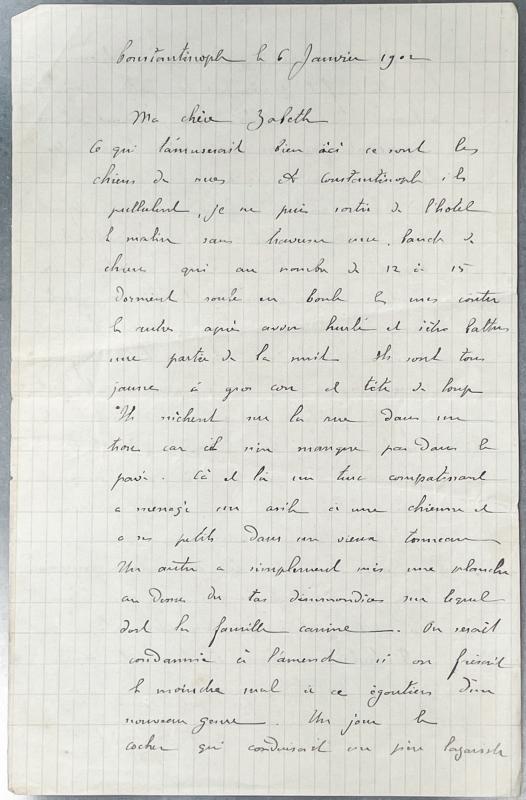 Constantinople le 6 Janvier 1902
Ma chère Zabeth
Ce qui t'amuserait bien ici ce sont les
chiens de rues A Constantinople ils
pullulent, je ne puis sortir de l'hotel
le matin sans traverser une bande de
chiens qui au nombre de 12 à 15
dorment roulés en boule les uns contre
les autres après avoir hurlé et s'être battus
une partie de la nuit Ils sont tous
jaunes à gros cou et tête de loup
Ils nichent sur la rue dans un
trou car il n'en manque pas dans le
pavé. Cà et là un turc compatissant
a menagé un asile à une chienne et
a ses petits dans un vieux tonneau
Un autre a simplement mis une planche
au dessus du tas d'immondices sur lequel
dort la famille canine. On serait
condamné à l'amende si on faisait
le moindre mal à ce égoutiers d'un
nouveau genre. Un jour le
cocher qui conduisait un père